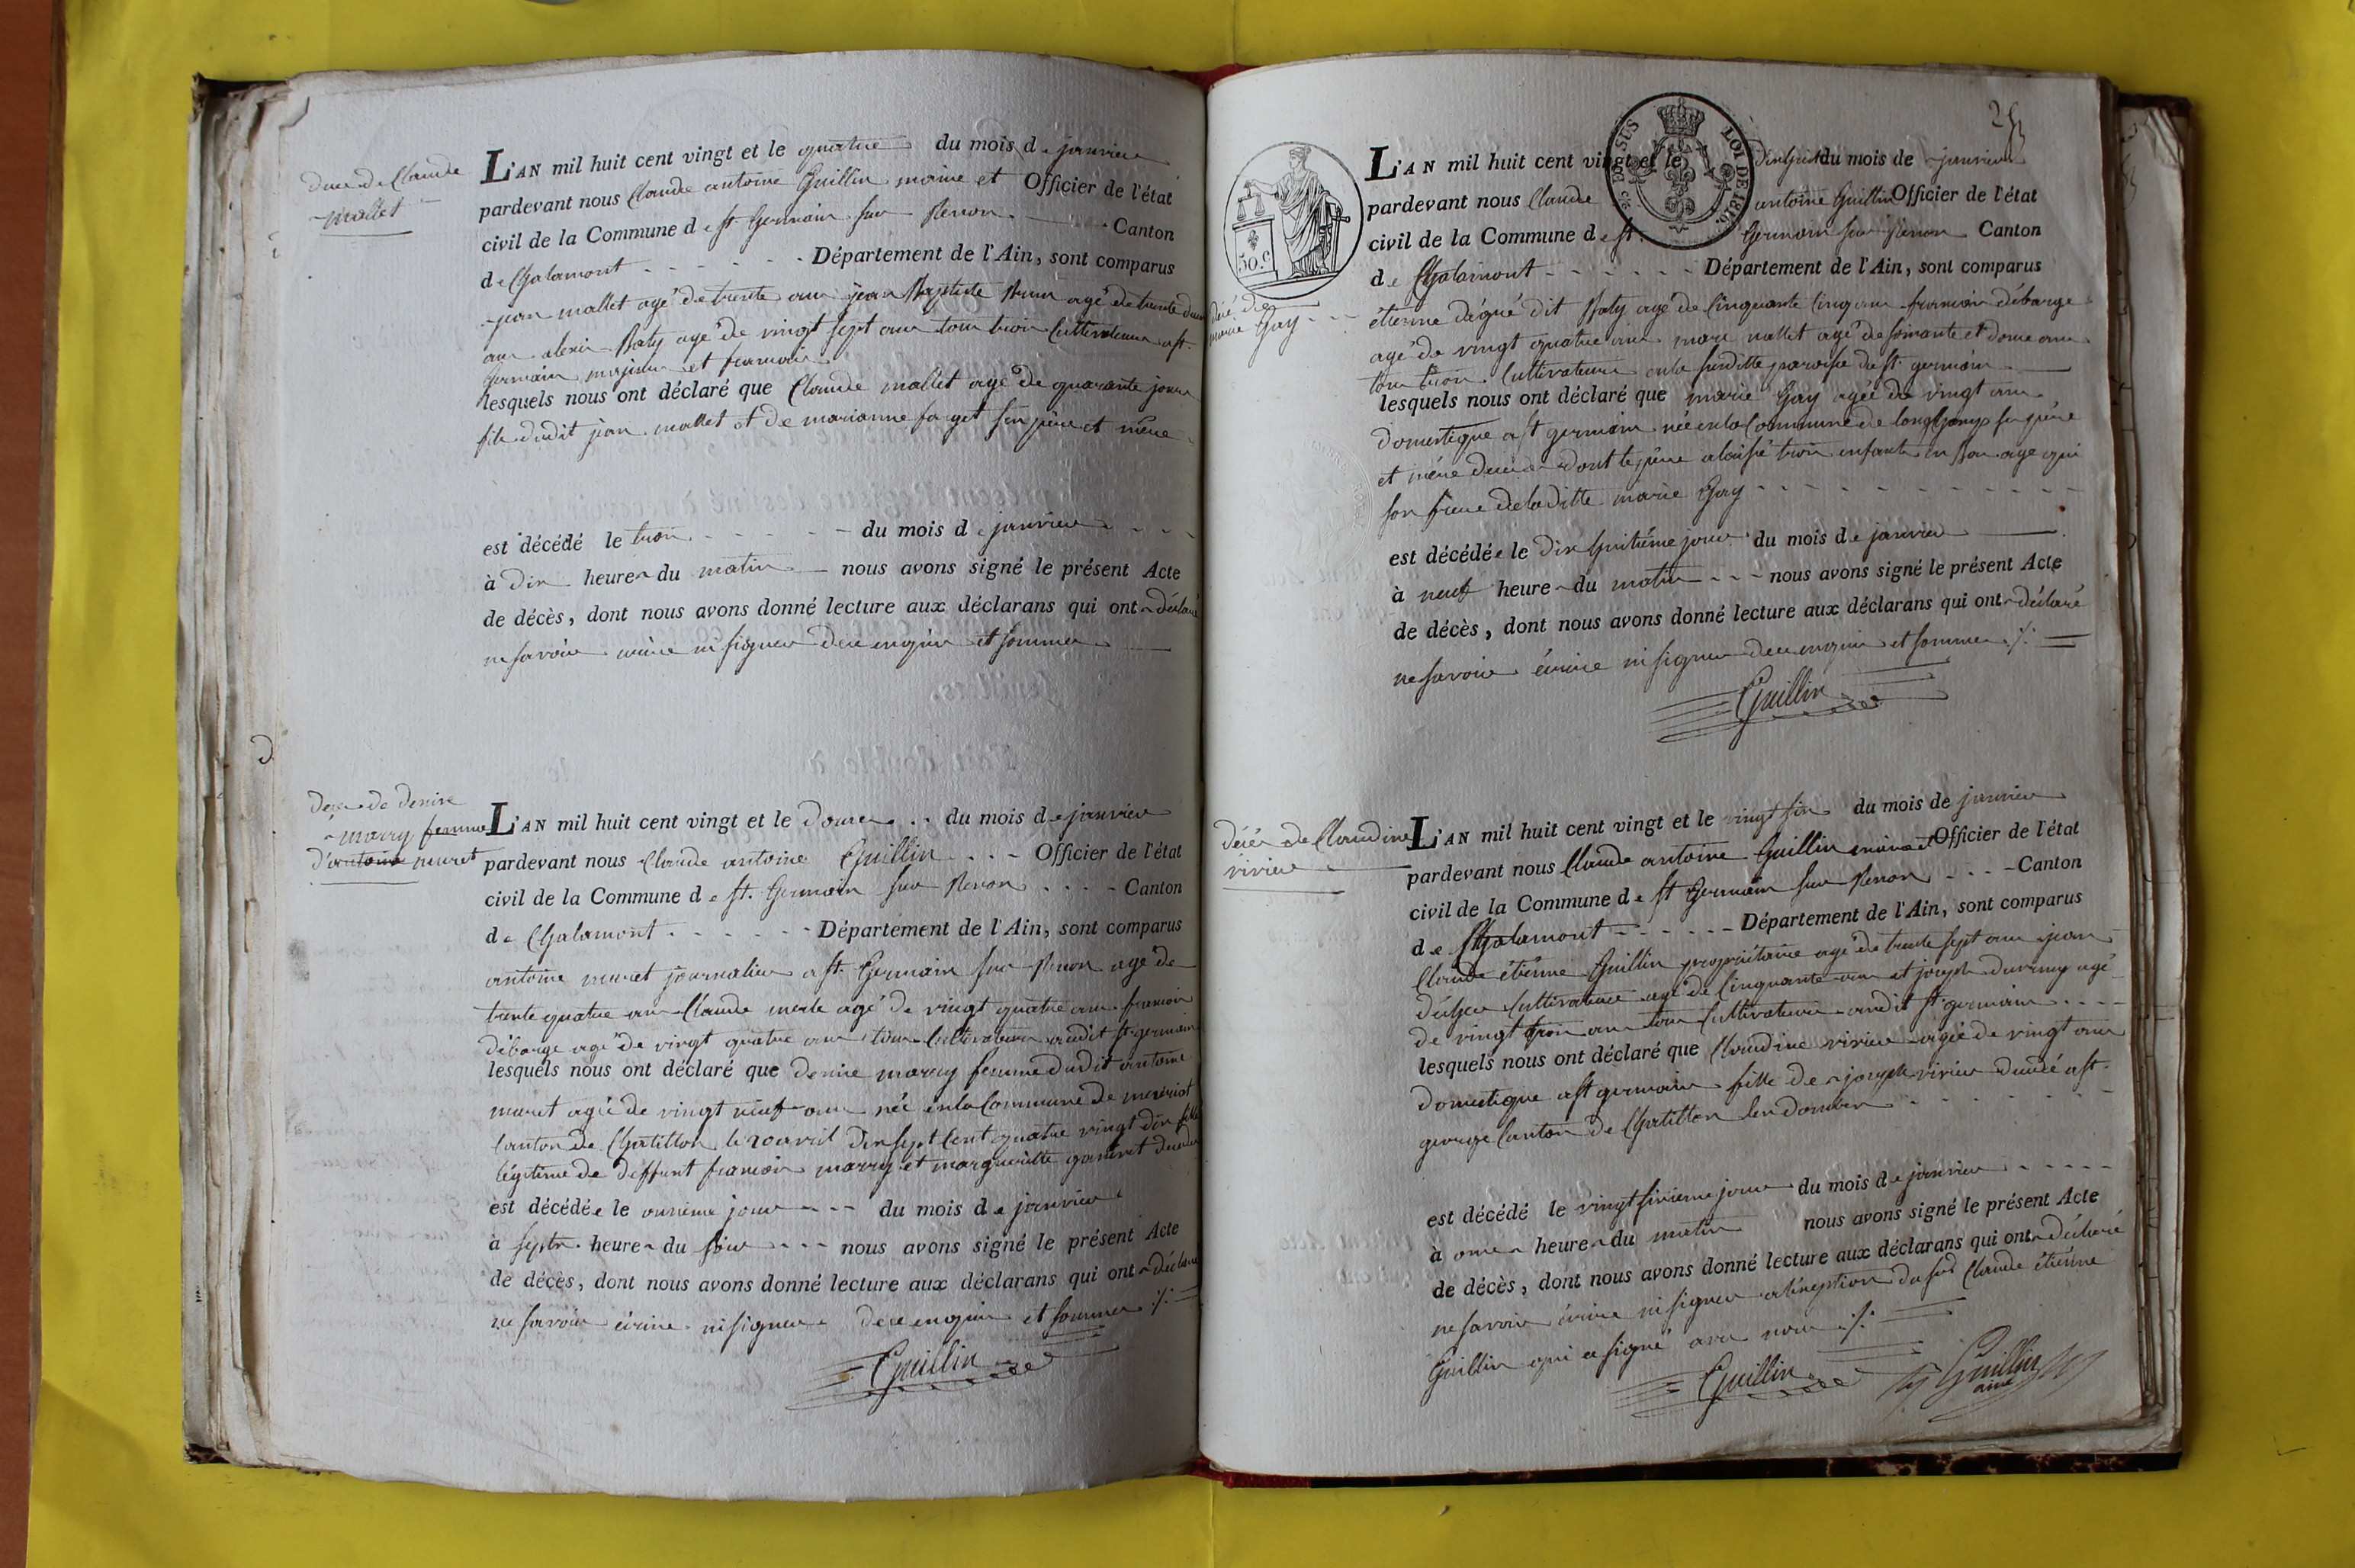 décès de Claude
mallet
L'AN mil huit cent vingt et le quatre du mois de janvier
pardevant nous Claude antoine Guillin maire et Officier de l'état
civil de la Commune de st Germain sur Renon Canton
de Chalamont Département de l'Ain, sont comparus
jean mallet agé de trente ans jean Baptiste agé de trente deux
ans alexis Baty agé de vingt sept ans tous trois Cultivateurs a st
Germain majeurs et francais
lesquels nous ont déclaré que Claude mallet agé de quarante jours
fils dudit jean mallet et de marianne forget son père et mère
est décédé le trois du mois de janvier
à dix heures du matin nous avons signé le présent Acte
de décès, dont nous avons donné lecture aux déclarans qui ont déclaré
ne savoir écrire ni signer de ce enquis et sommés
décès de denise
marry femme
d'antoine muret
L'AN mil huit cent vingt et le douze du mois de janvier
pardevant nous Claude antoine Guillin Officier de l'état
civil de la Commune de st. Germain sur Renon Canton
de Chalamont Département de l'Ain, sont comparus
antoine muret journalier a st. Germain sur Renon agé de
trente quatre ans Claude merle agé de vingt quatre ans francois
débarge agé de vingt quatre ans tous Cultivateurs audit st germain
lesquels nous ont déclaré que denise marry femme dudit antoine
muret agée de vingt neuf ans née en la Commune de
Canton de Chatillon le 20 avril dix sept Cent quatre vingt dix fille
légitime de deffunt francois marry et margueritte décédés
est décédée le onzième jour du mois de janvier
à sept heures du soir nous avons signé le présent Acte
de décès, dont nous avons donné lecture aux déclarans qui ont déclaré
ne savoir écrire ni signer de ce enquis et sommés ./.
Guillin
LOI DE 1816.
50.c
décé de
marie Gay
L'AN mil huit cent vingt et le dix huit du mois de janvier
pardevant nous Claude antoine Guillin Officier de l'état
civil de la Commune de st. Germain sur Renon Canton
de Chalamont Département de l'Ain, sont comparus
étienne dégué dit Baty agé de Cinquante Cinq ans francois débarge
agé de vingt quatre ans marc mallet agé de soixante et douze ans
tous trois Cultivateurs en la susditte paroisse de st. germain
lesquels nous ont déclaré que marie Gay agée de vingt ans
domestique a st germain née en la Commune de longchamp ses père
et mère décédés dont le père a laissé trois enfants en bas age qui
son frere de la ditte marie Gay
est décédée le dix huitième jour du mois de janvier
à neuf heures du matin nous avons signé le présent Acte
de décès, dont nous avons donné lecture aux déclarans qui ont déclaré
ne savoir écrire ni signer de ce enquis et sommés ./.
Guillin
décés de Claudine
vivier
L'AN mil huit cent vingt et le vingt six du mois de janvier
pardevant nous Claude antoine Guillin maire et Officier de l'état
civil de la Commune de st Germain sur Renon Canton
de Chalamont Département de l'Ain, sont comparus
Claude étienne Guillin propriétaire agé de trente sept ans jean
Cultivateur agé de Cinquante ans et joseph agé
de vingt trois ans tous Cultivateurs audit st germain
lesquels nous ont déclaré que Claudine vivier agée de vingt ans
domestique a st germain fille de joseph vivier décédé a st.
george Canton de Chatillon les dombes
est décédé le vingt sixieme jour du mois de janvier
à onze heures du matin nous avons signé le présent Acte
de décès, dont nous avons donné lecture aux déclarans qui ont déclaré
ne savoir écrire ni signer a l'exeption du sud Claude étienne
Guillin qui a signé avec nous ./.
Guillin Guillin
ainé